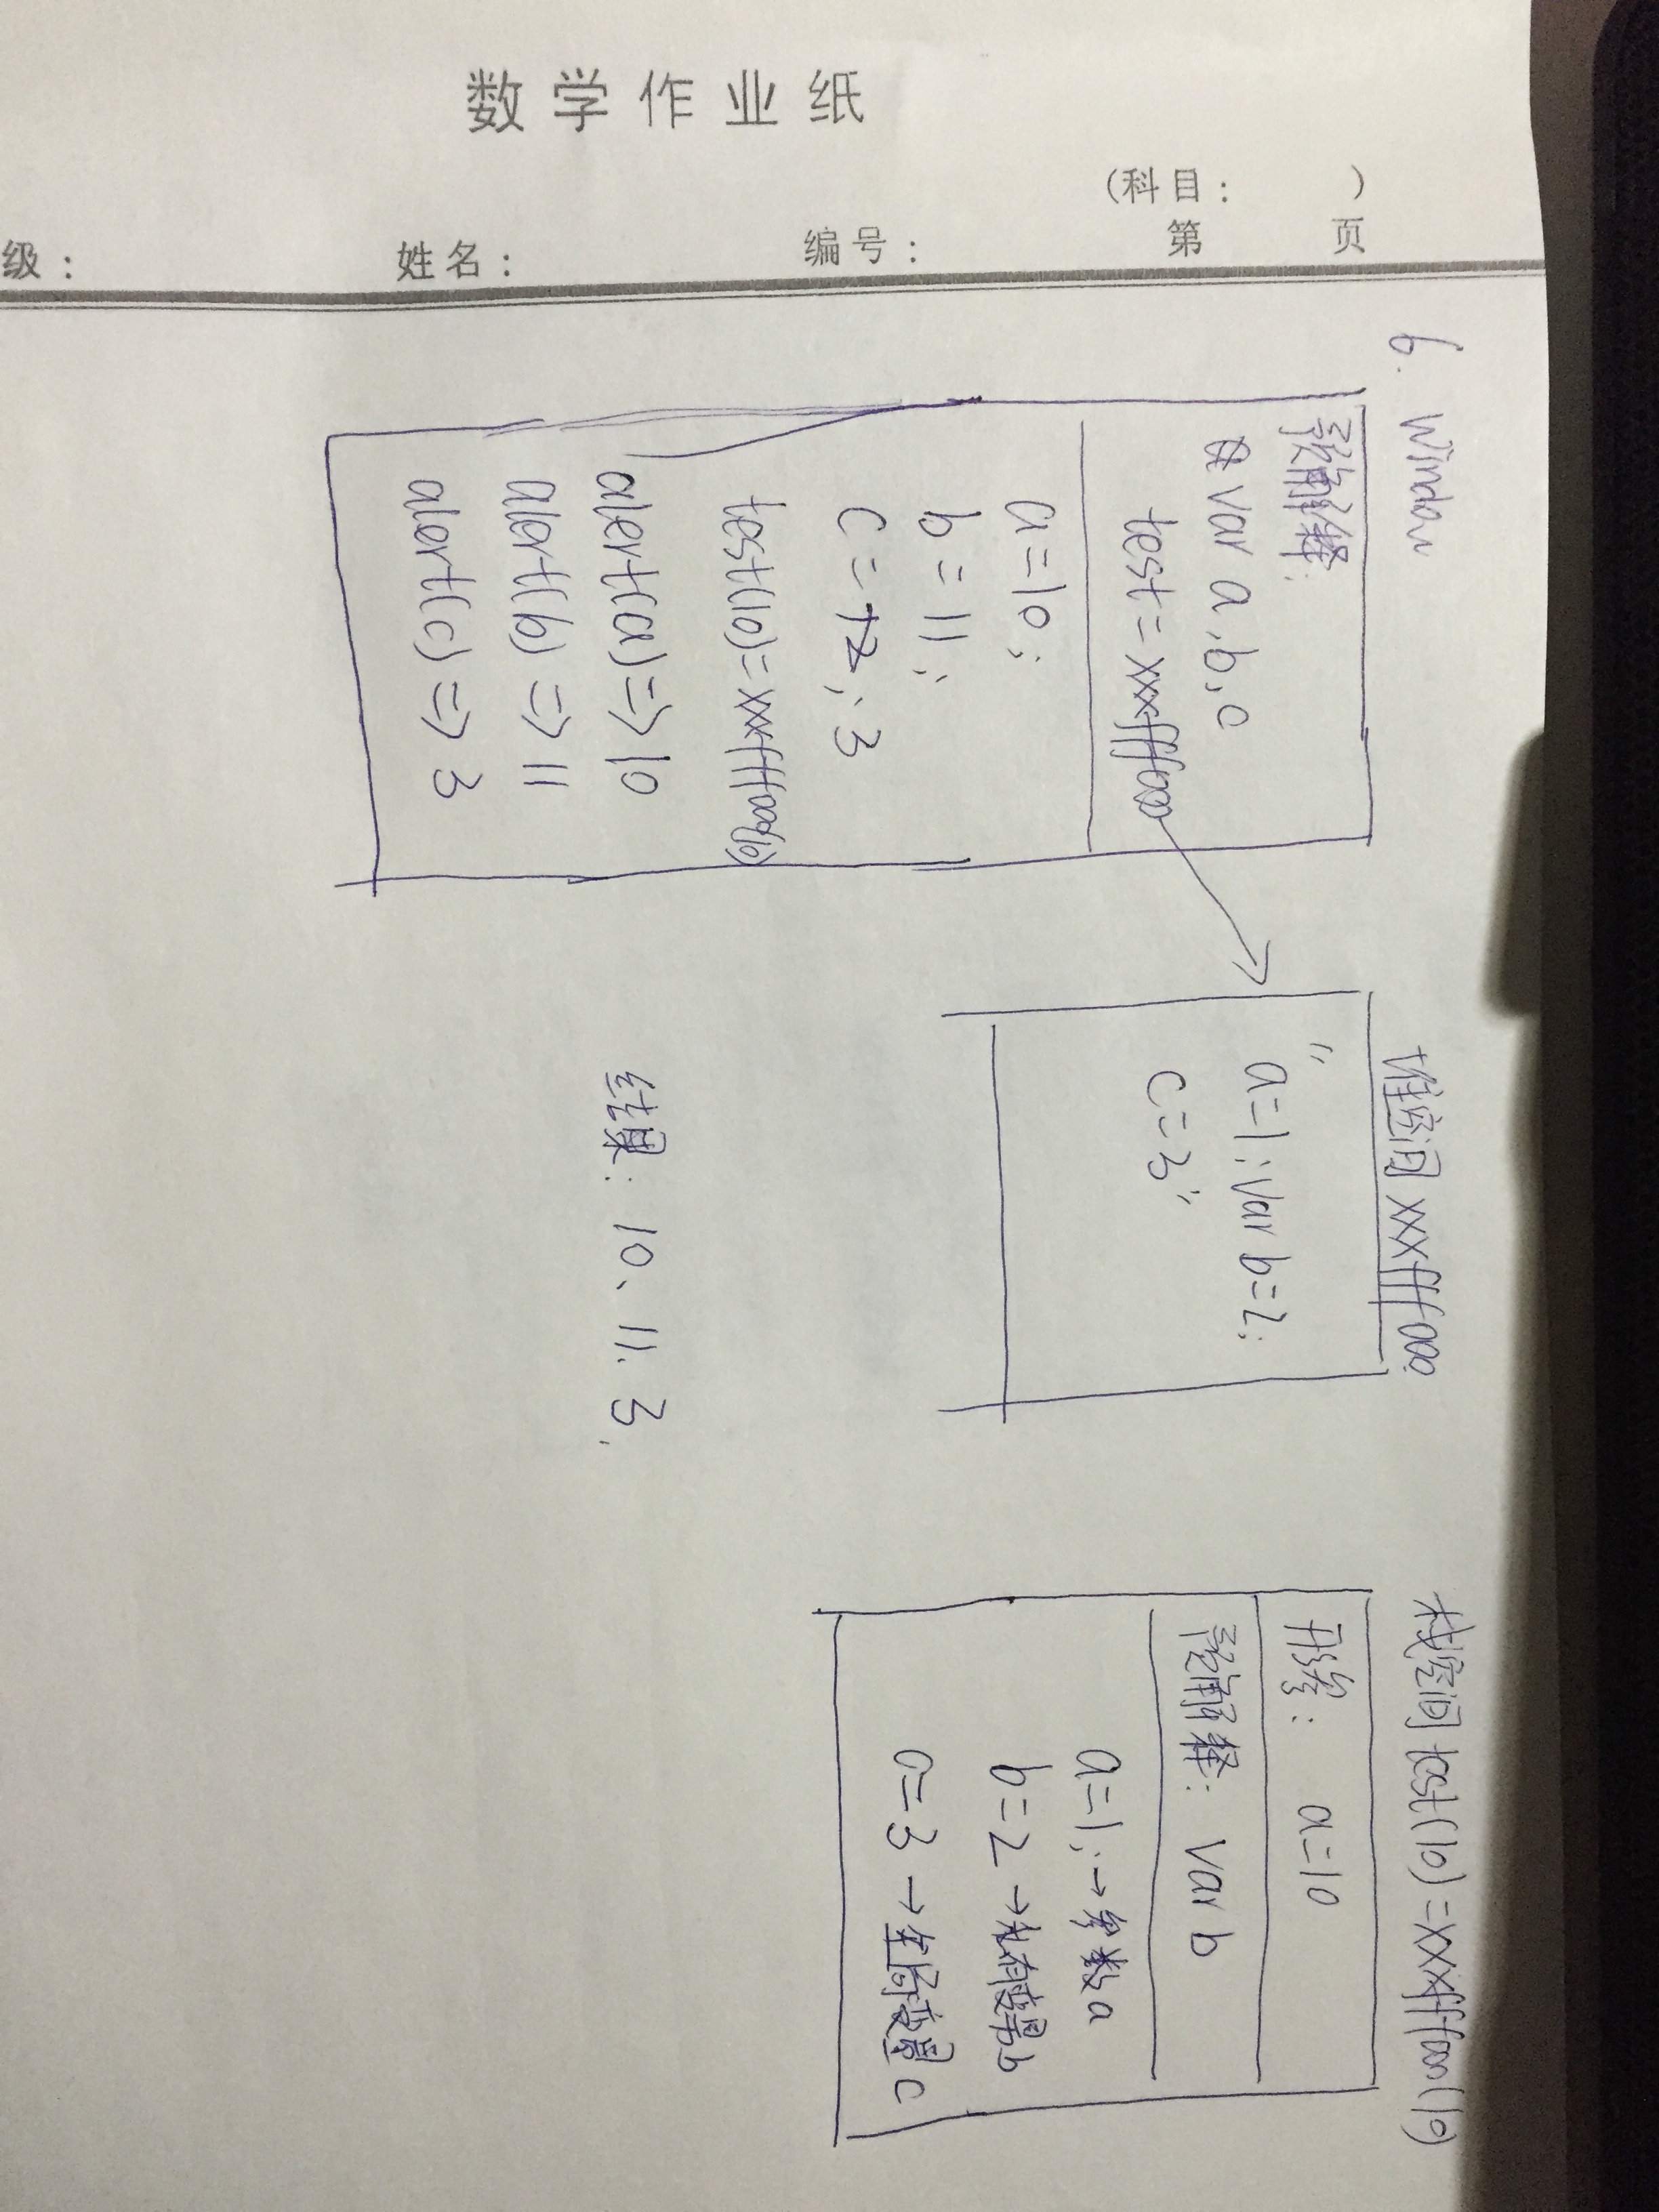 数学作业纸
(科目: )
级: 姓名: 编号: 第 页
6. Window
预解释:
var a,b,c
test=xxxfff000
a=10;
b=11;
c=12; 3
test(10)=xxxfff000(10)
alert(a)=>10
alert(b)=>11
alert(c)=>3
堆空间 xxxfff000
"a=1;var b=2;
c=3"
栈空间 test(10)=xxxfff000(10)
形参: a=10
预解释: var b
a=1;→参数a
b=2→私有变量b
c=3→全局变量c
结果: 10、11、3